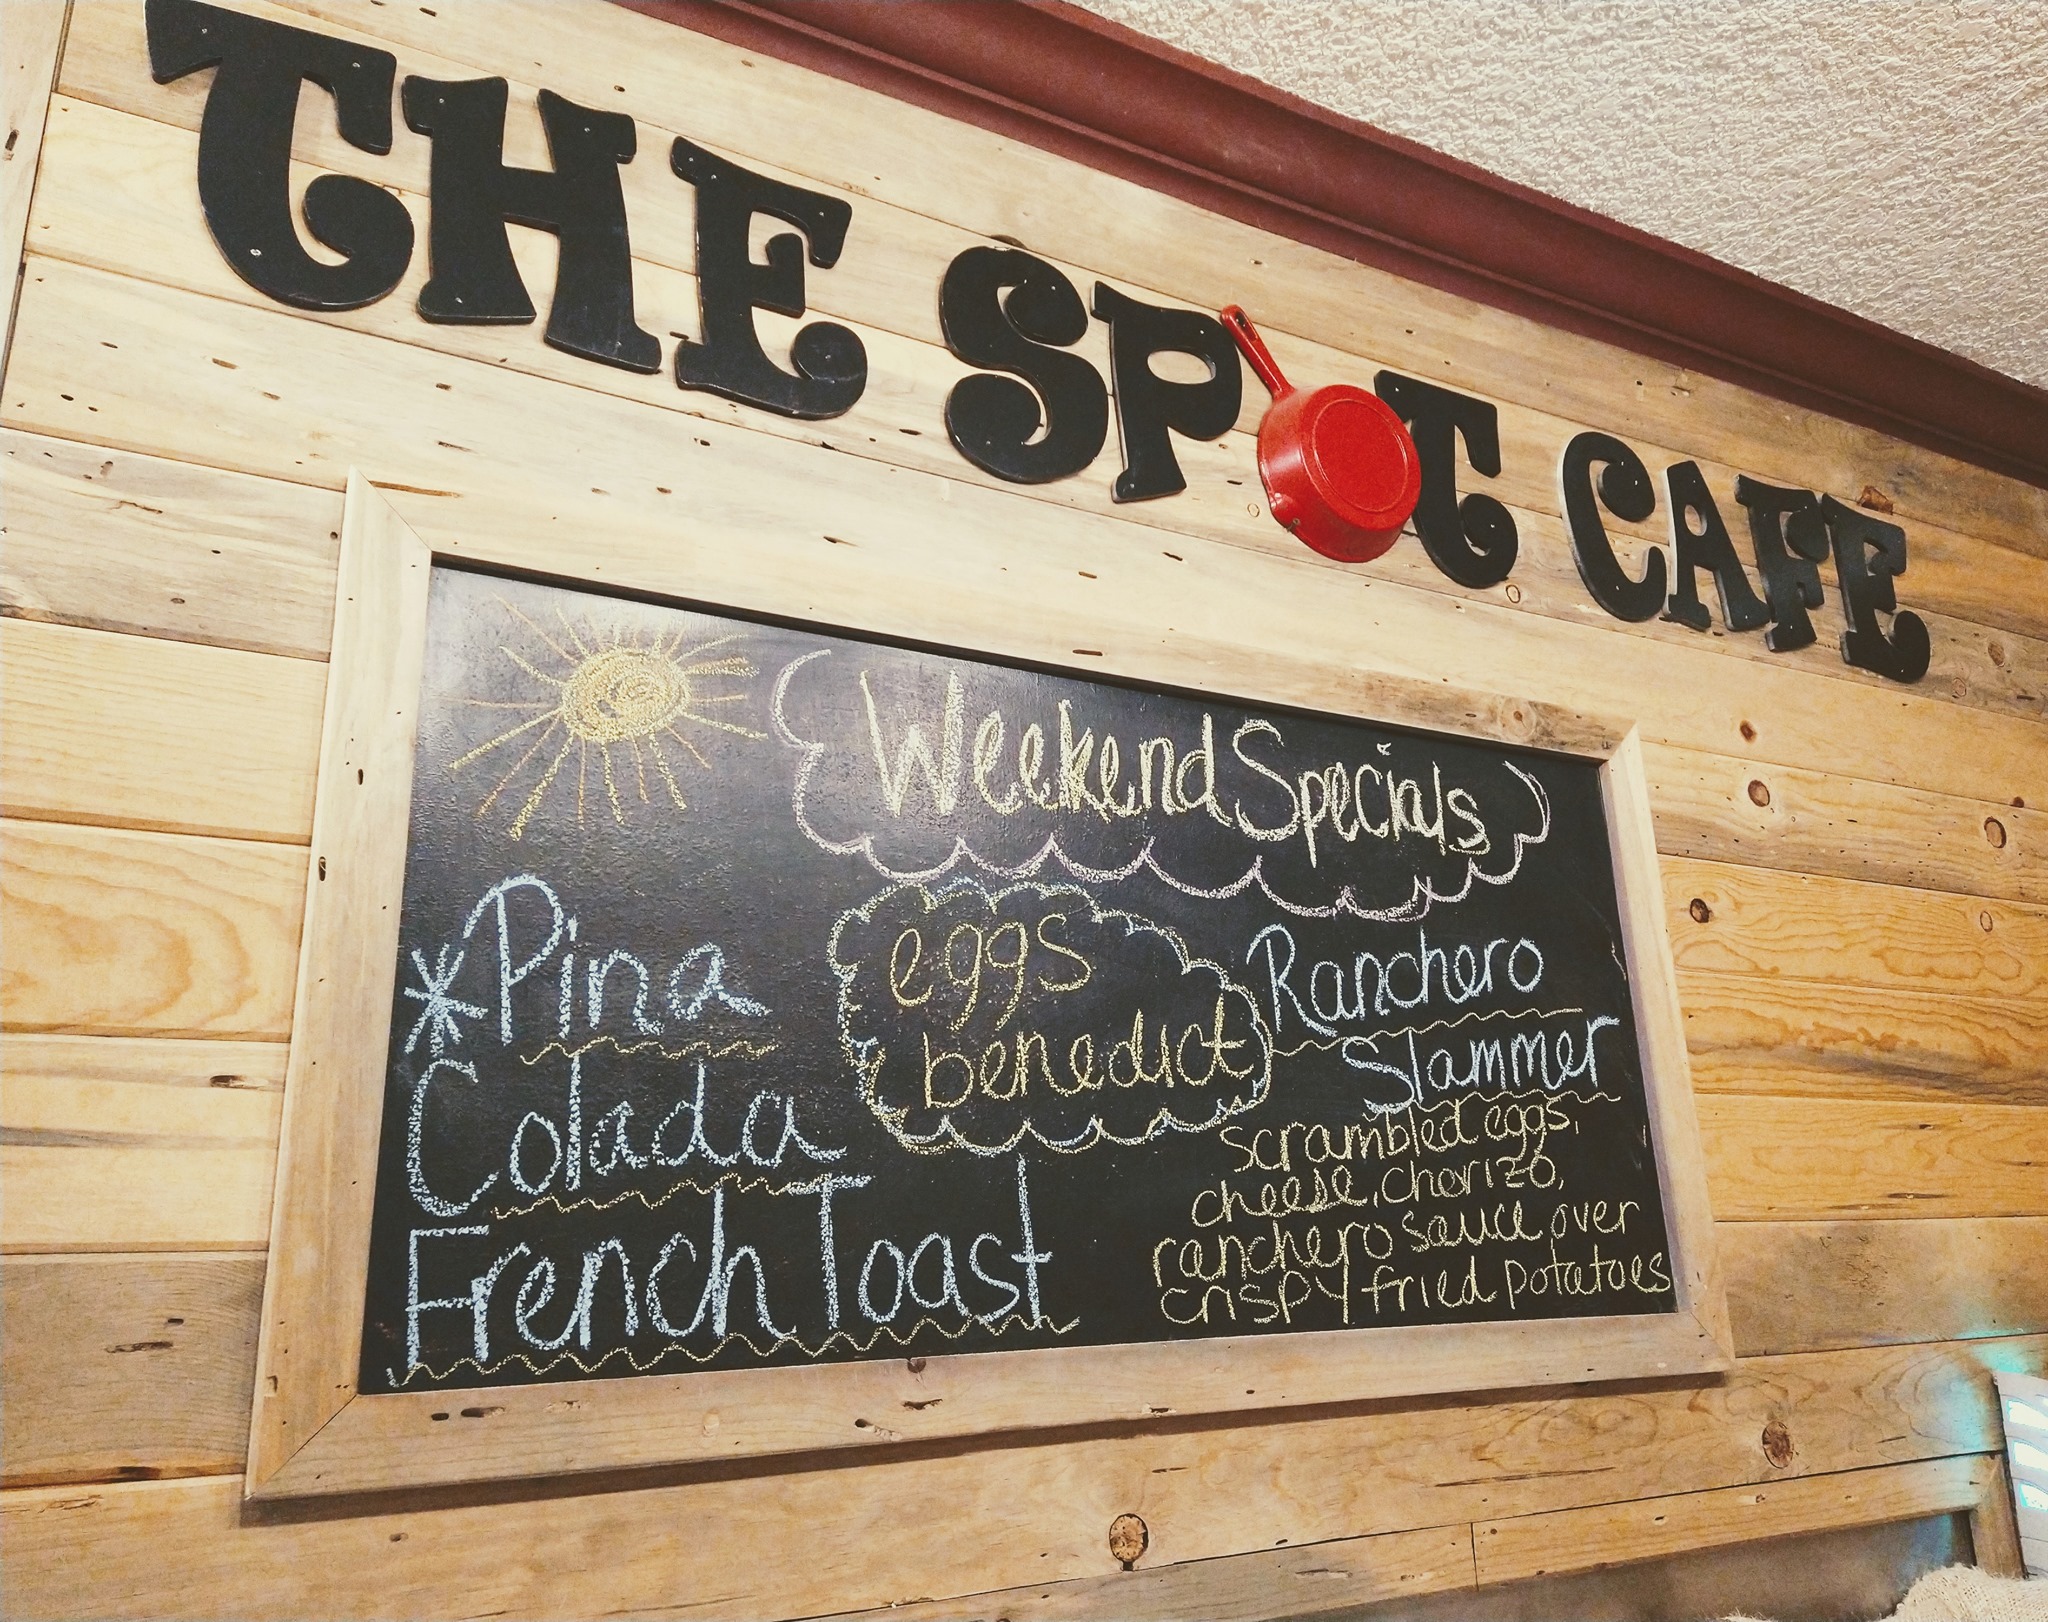 THE SPOT CAFE
Weekend Specials
*Pina
Colada
French Toast
eggs
benedict
Ranchero
Slammer
scrambled eggs,
cheese, chorizo,
ranchero sauce, over
crispy fried potatoes